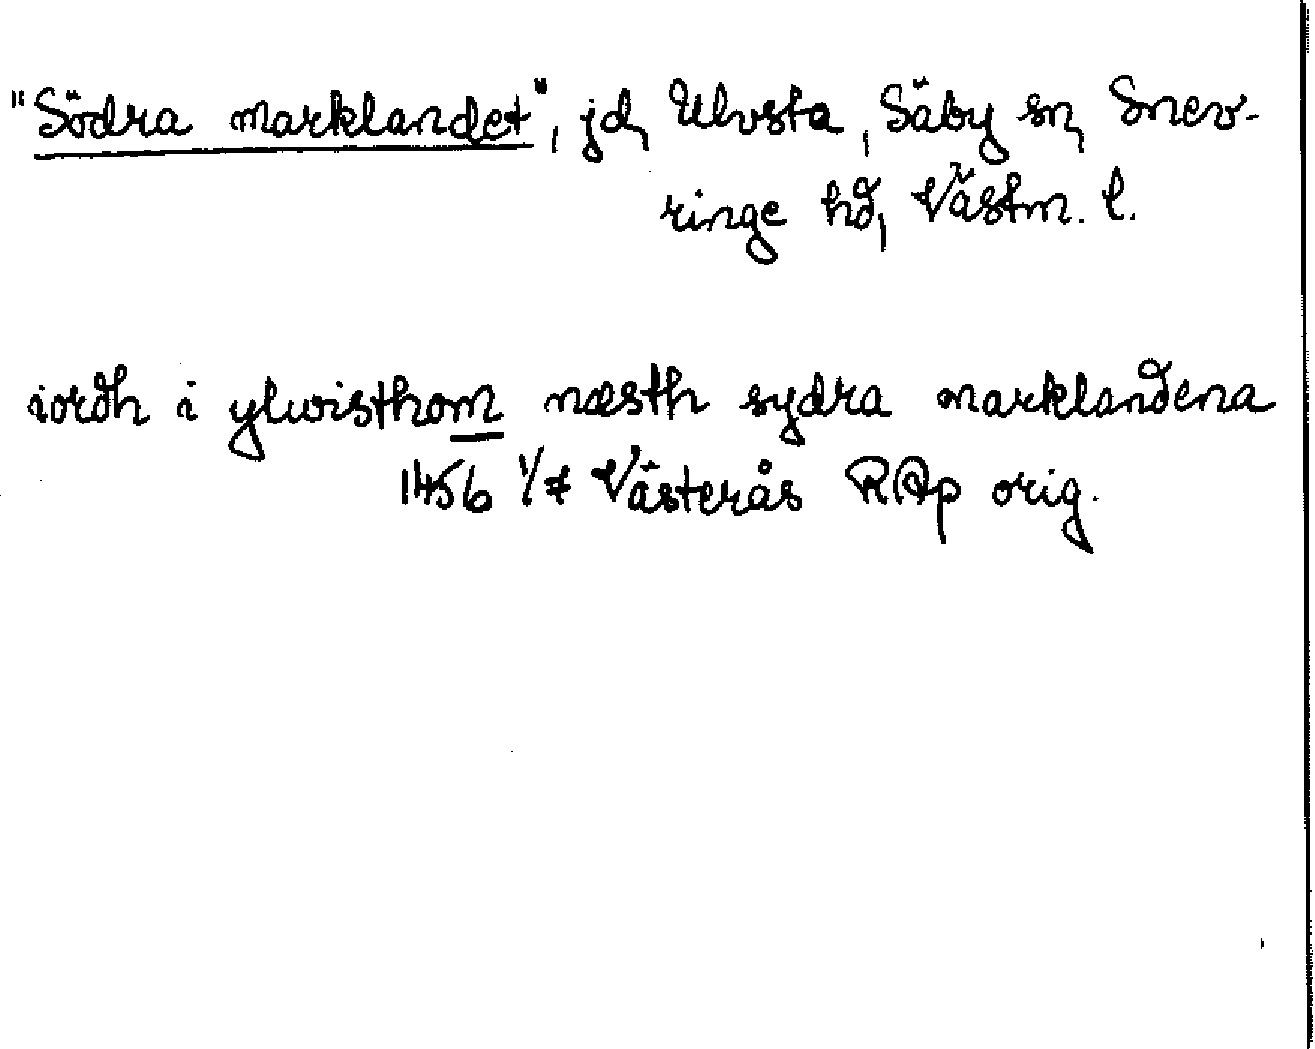 "Södra marklandet", jd, Ulvsta, Säby sn, Snev-
ringe hd, Västm. l.
iordh i ylwisthom næsth sydra marklandena
1456 1/7 Västerås RAp orig.